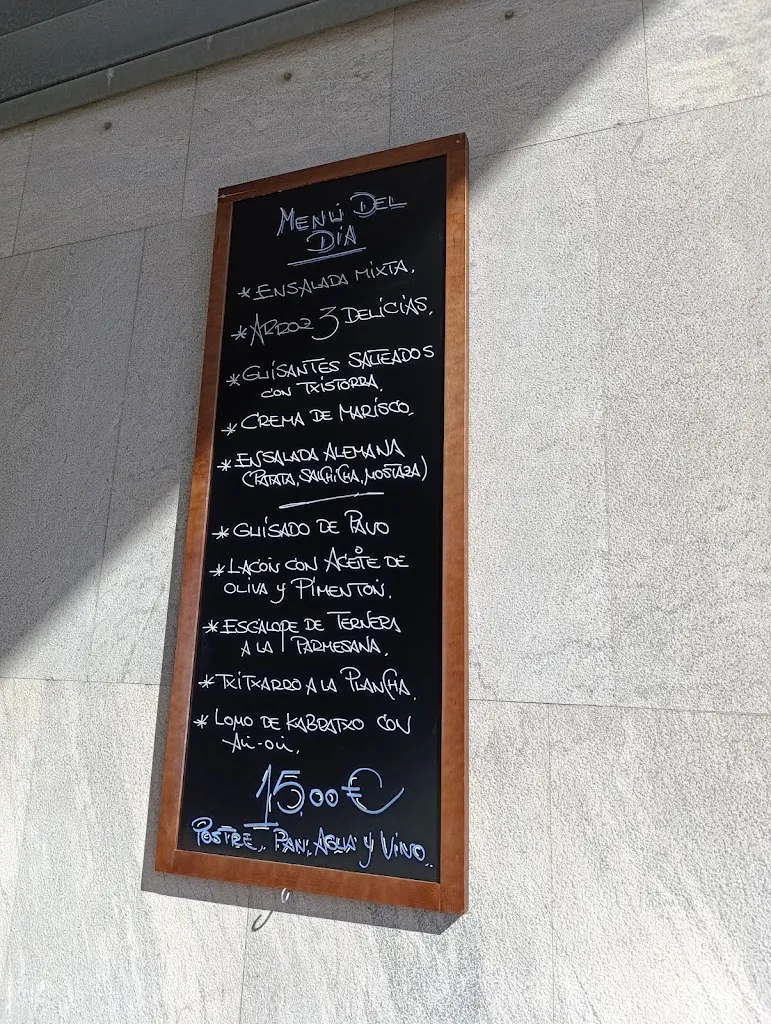 MENÚ DEL
DÍA
* ENSALADA MIXTA.
* ARROZ 3 DELICIAS.
* GUISANTES SALTEADOS
CON TXISTORRA.
* CREMA DE MARISCO.
* ENSALADA ALEMANA
(PATATA, SALCHICHA, MOSTAZA)
* GUISADO DE PAVO
* LACÓN CON ACEITE DE
OLIVA Y PIMENTÓN.
* ESCALOPE DE TERNERA
A LA PARMESANA.
* TXITXARRO A LA PLANCHA.
* LOMO DE KABRATXO CON
ALI-OLI.
15,00 €
POSTRE, PAN, AGUA Y VINO..